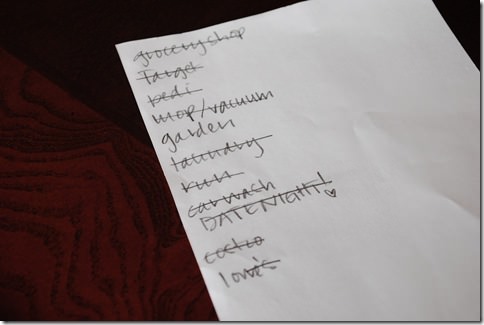 grocery shop
Target
pedi
mop/vacuum
garden
laundry
run
carwash
DATE NIGHT! ♡
costco
lowe's